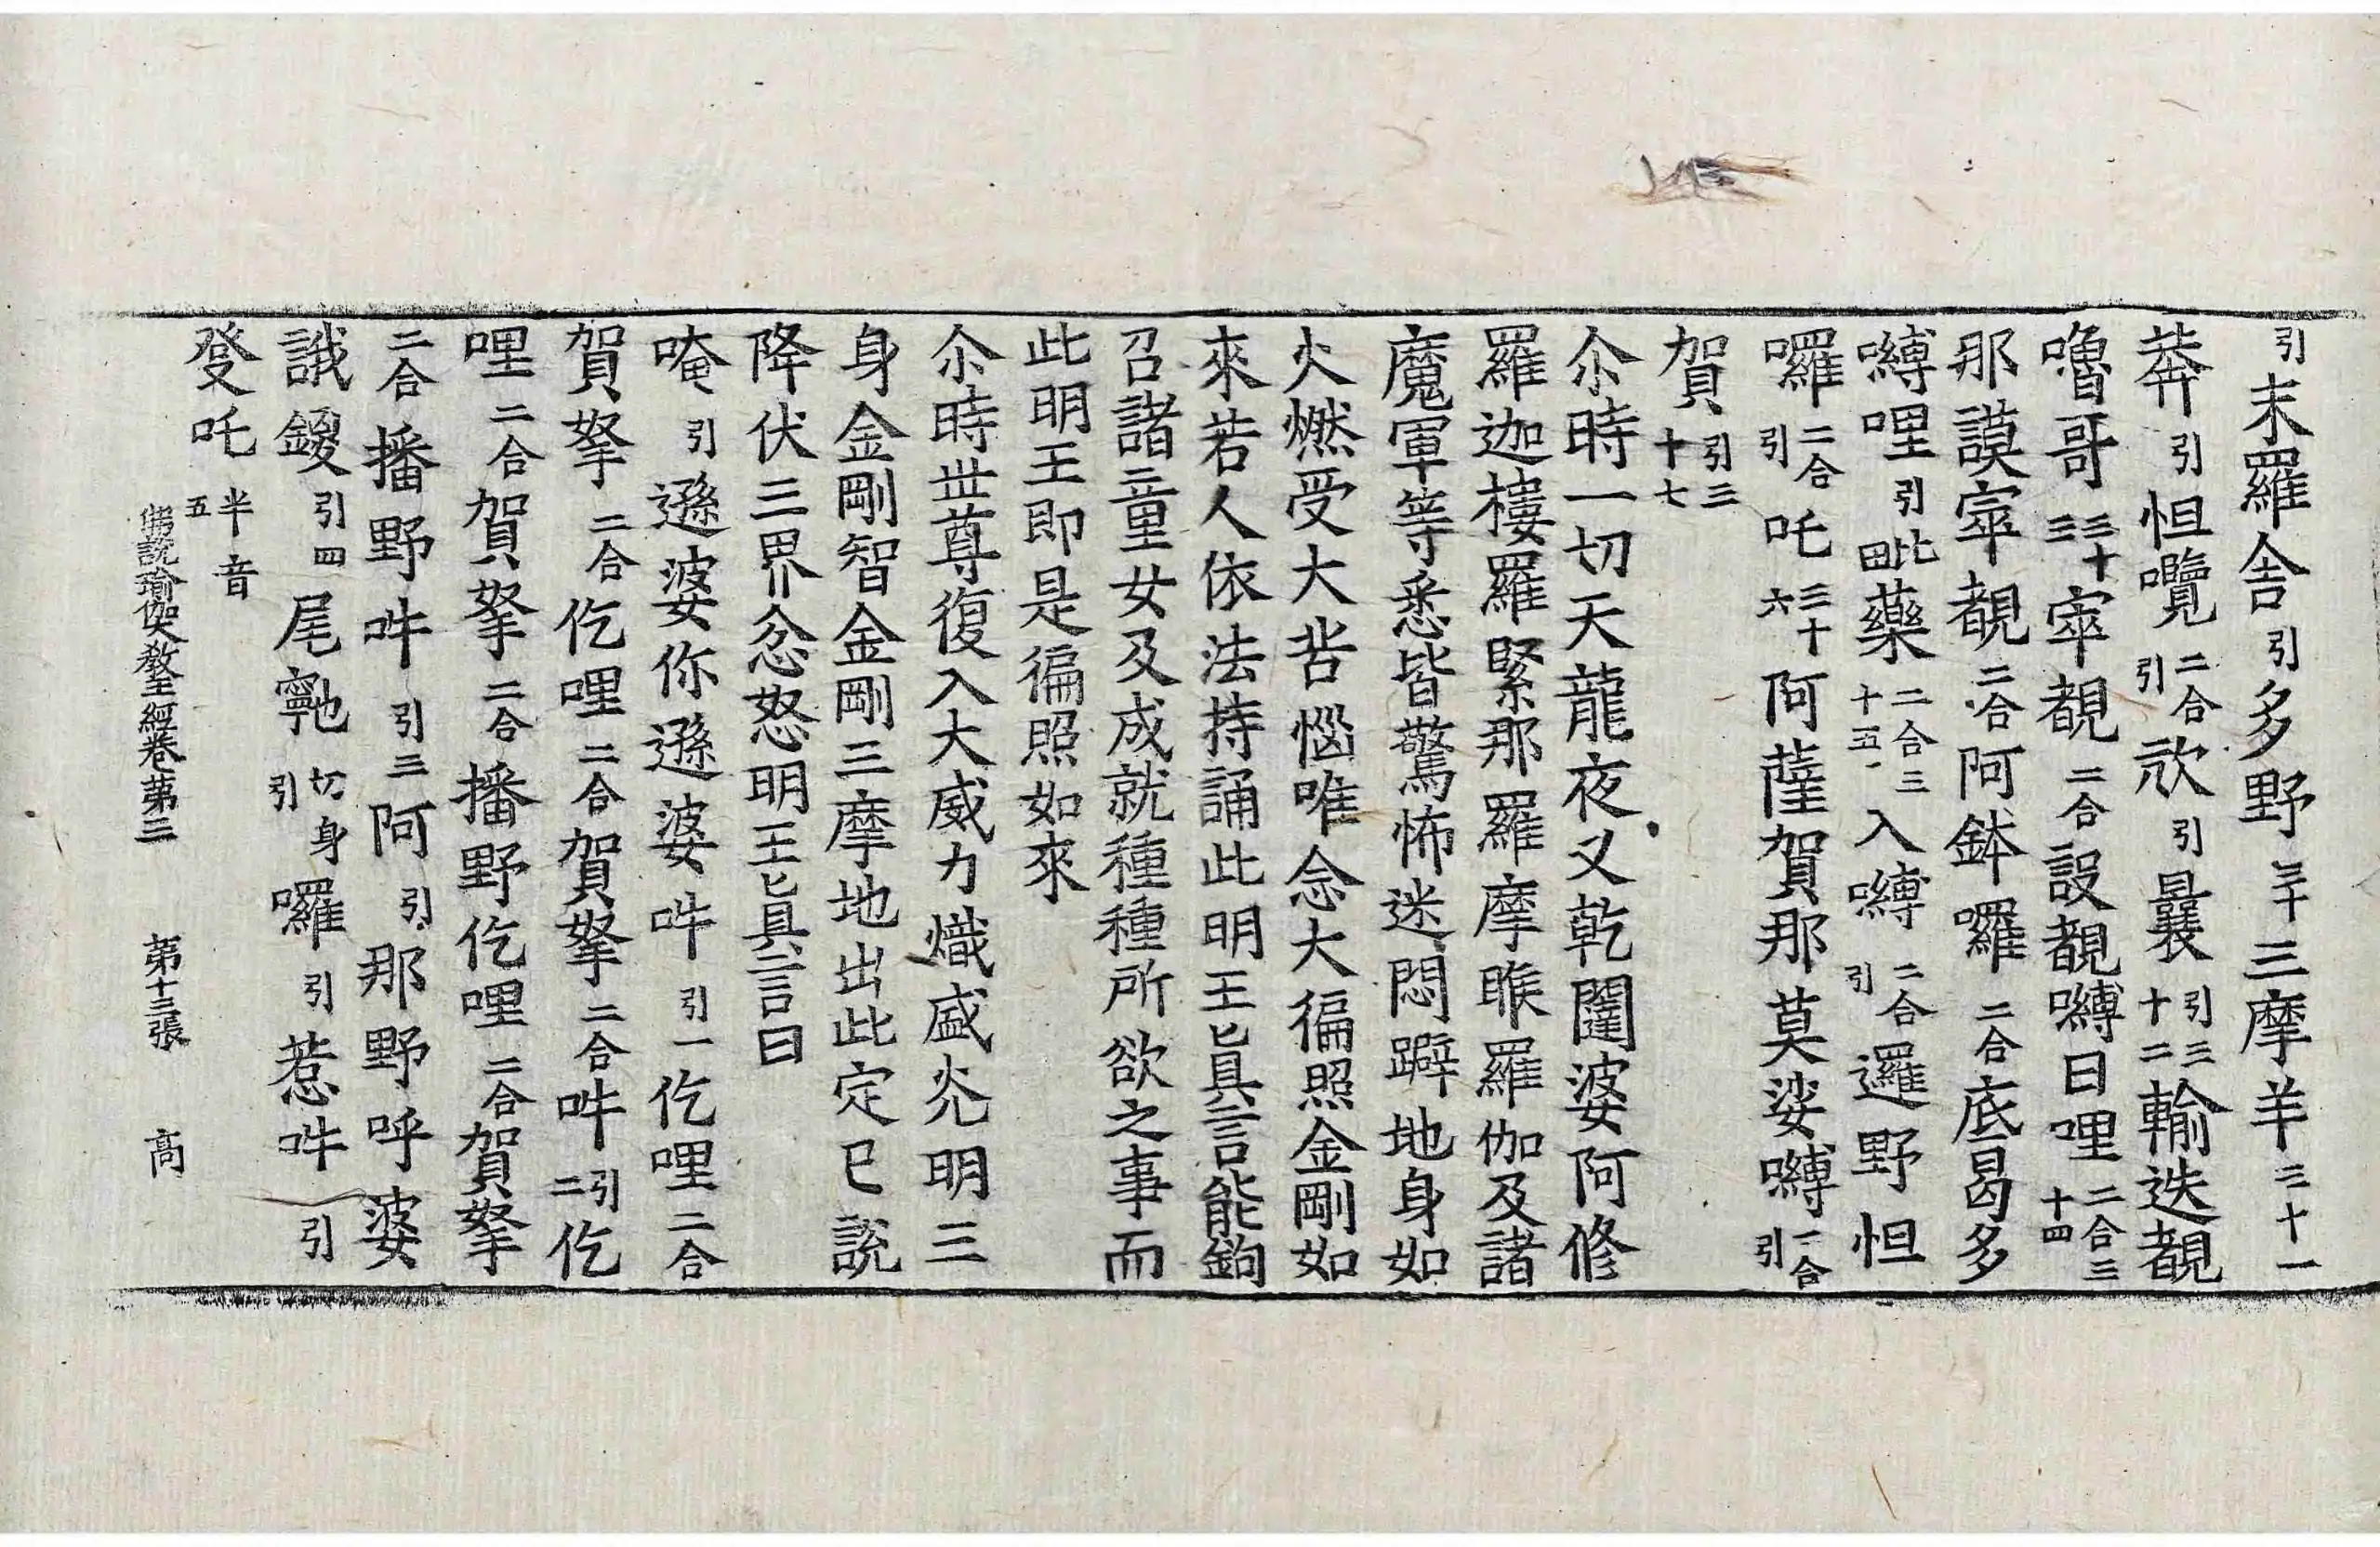 引末羅舍引多野三十三摩羊三十一
莾引怛囕二合引欻引曩引三十二輸迭覩
嚕哥三十三窣覩二合設覩嚩日哩二合三十四
那謨窣覩二合阿鉢囉二合底曷多
嚩哩引此四藥二合三十五入嚩二合引邏野怛
囉二合引吒三十六阿薩賀那莫娑嚩二合引
賀引三十七
尒時一切天龍夜叉乾闥婆阿修
羅迦樓羅緊那羅摩睺羅伽及諸
魔軍等悉皆驚怖迷悶躃地身如
火燃受大苦惱唯念大徧照金剛如
來若人依法持誦此明王真言能鉤
召諸童女及成就種種所欲之事而
此明王即是徧照如來
尒時世尊復入大威力熾盛光明三
身金剛智金剛三摩地出此定已說
降伏三界忿怒明王真言曰
唵引遜婆你遜婆吽引一仡哩二合
賀拏二合仡哩二合賀拏二合吽引二仡
哩二合賀拏二合播野仡哩二合賀拏
二合播野吽引三阿引那野呼婆
誐鑁引四尾𩕳切身引囉引惹吽引
發吒半音五
佛說瑜伽大教王經卷第三 第十三張 高